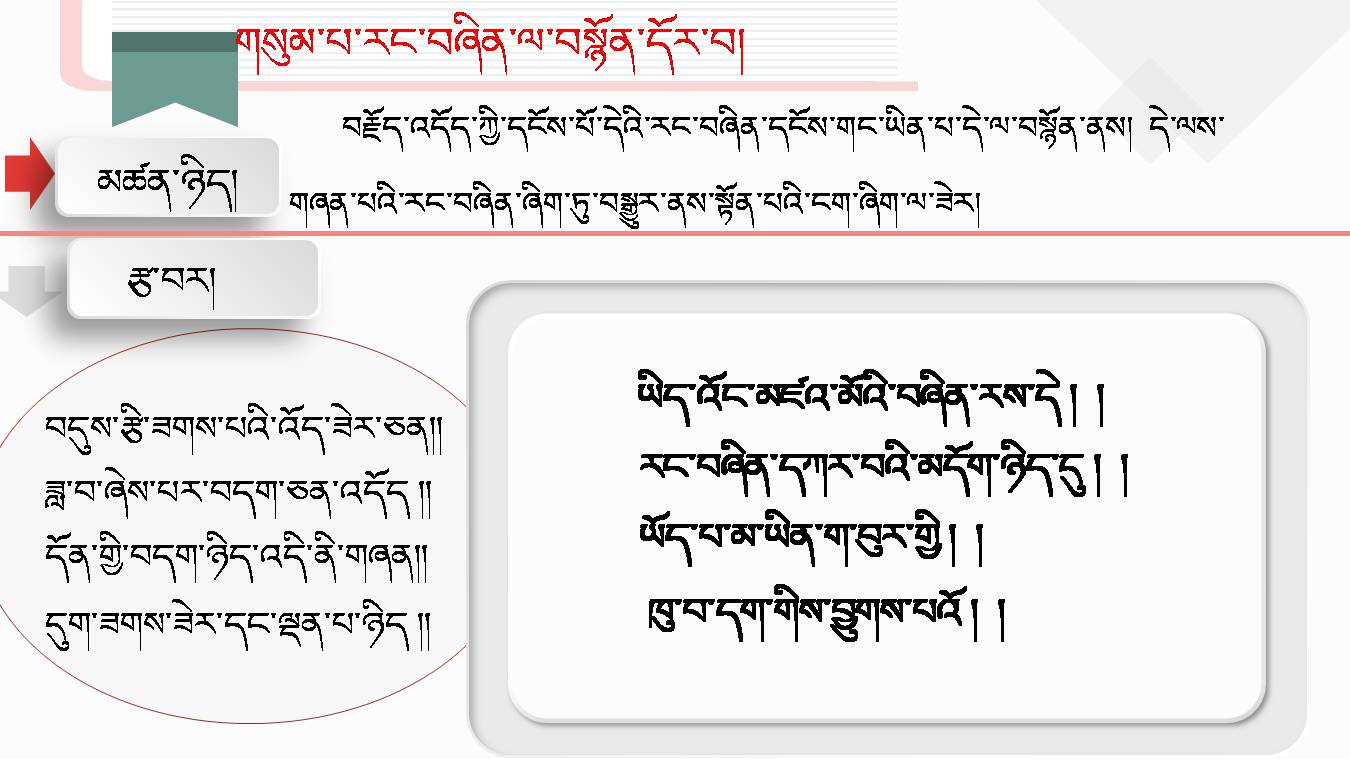 གསུམ་པ་རང་བཞིན་ལ་བསྙོན་དོར་བ།
བརྗོད་འདོད་ཀྱི་དངོས་པོ་དེའི་རང་བཞིན་དངོས་གང་ཡིན་པ་དེ་ལ་བསྙོན་ནས། དེ་ལས་
མཚན་ཉིད།
གཞན་པའི་རང་བཞིན་ཞིག་ཏུ་བསྒྱུར་ནས་སྟོན་པའི་ངག་ཞིག་ལ་ཟེར།
རྩ་བར།
བདུས་རྩི་ཟགས་པའི་འོད་ཟེར་ཅན།།
ཟླ་བ་ཞེས་པར་བདག་ཅན་འདོད །།
དོན་གྱི་བདག་ཉིད་འདི་ནི་གཞན།།
དུག་ཟགས་ཟེར་དང་ལྡན་པ་ཉིད །།
ཡིད་འོང་མཛའ་མོའི་བཞིན་རས་དེ། །
རང་བཞིན་དཀར་བའི་མདོག་ཉིད་དུ། །
ཡོད་པ་མ་ཡིན་ག་བུར་གྱི། །
ཁུ་བ་དག་གིས་བྱུགས་པའོ། །